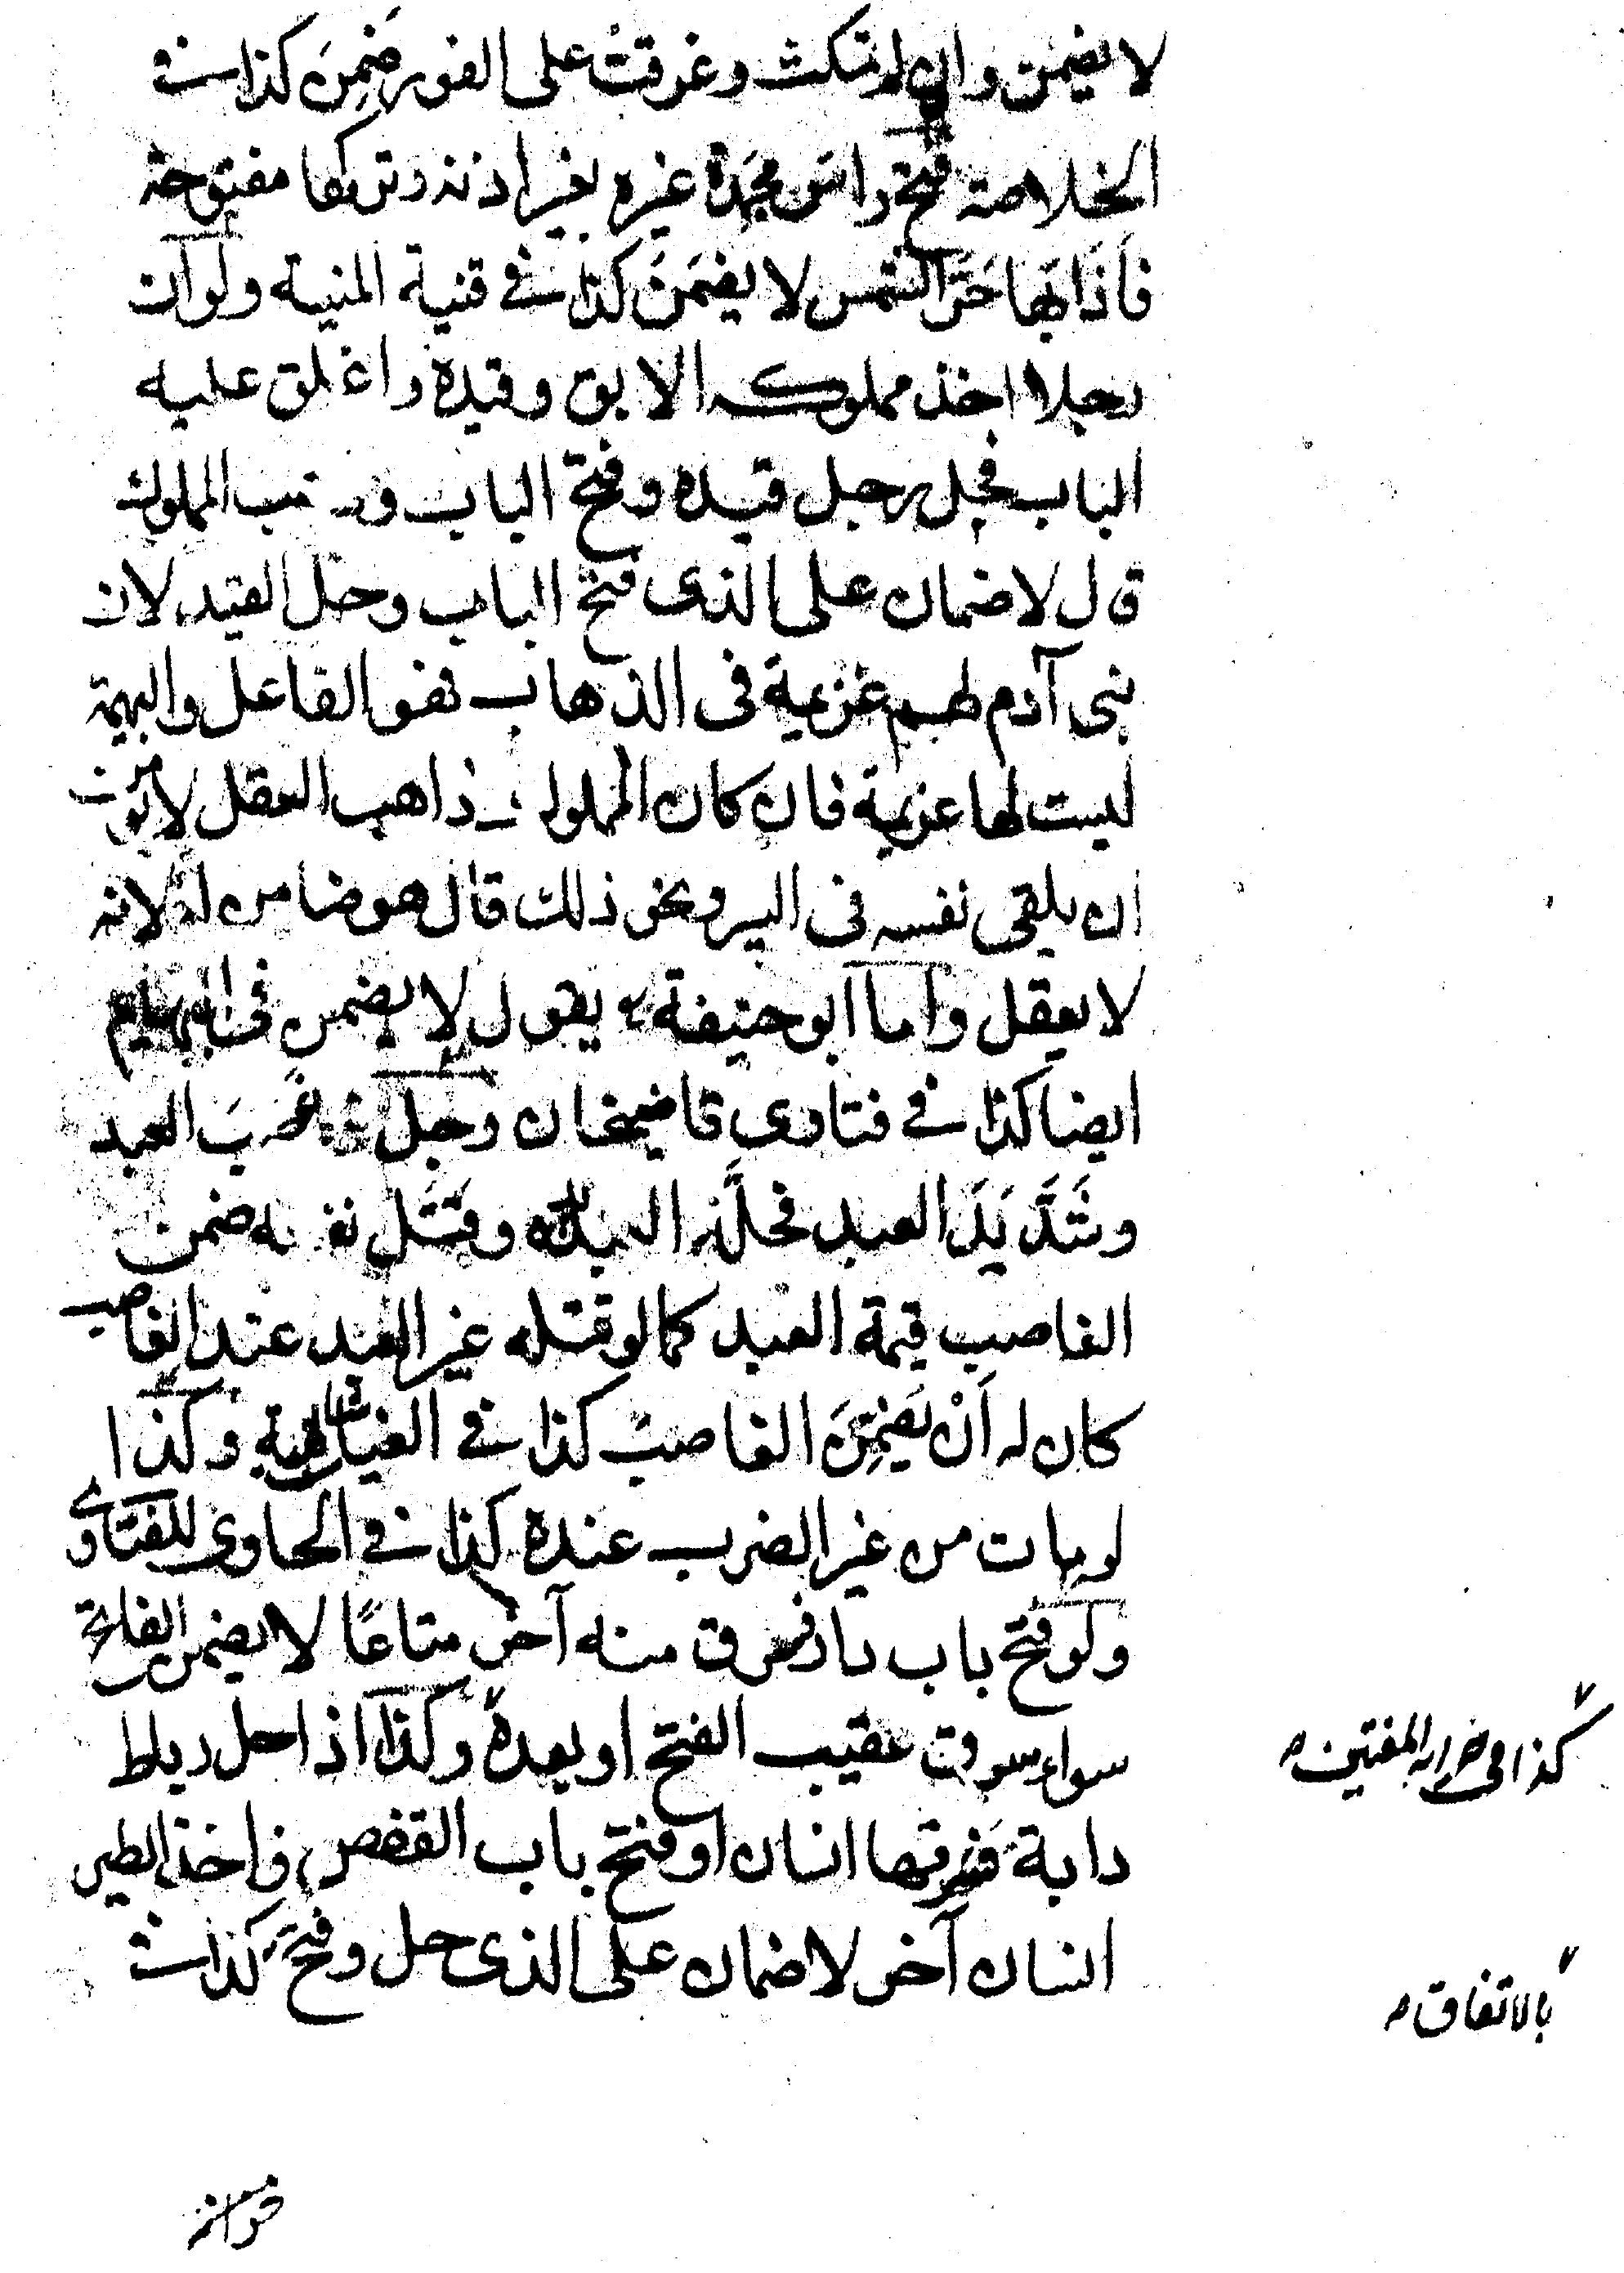 لا يضمن وان لم تمكث وغرقت على الفور ضَمِنَ كذا في
الخلاصة فتح راسَ مجمَدة غيره بغير اذنه وتركها مفتوحة
فاَذَابَها حَرّ الشمس لا يضمَن كذا في قنية المنية ولو ان
رجلا اخذ مملوكه الابق وقيده واغلق عليه
الباب فحل رجل قيده وفتح الباب المملوك
قال لا ضمان على الذى فتح الباب وحل القيد لان
بنى آدم لهم عزيمة فى الذهاب والبهيمة
ليست لها عزيمة فان كان المملوك ذاهب العقل لا يؤمن
ان يلقى نفسه فى البير ونحو ذلك قال هو ضامن له لانه
لا يعقل واما ابو حنيفة يقول لا يضمن فى البهايم
ايضا كذا في فتاوى قاضيخان رجل غصب العبد
وشَدَّ يَدَ العبد فحلَّه العبد وقَتَل نفسه ضمن
الغاصب قيمة العبد كما لو قتله غير العبد عند الغاصب
كان له اَنْ يُضَمِّنَ الغاصبَ كذا في الغياثية وكذا
لو مات من غير الضرب عنده كذا في الحاوى للفتاوى
ولو فتح باب دار فسرق منه آخر متاعًا لا يضمن الفاتح
سواء سرقت عقيب الفتح او بعده وكذا اذا حل رباط
كذا في خزانة المفتين
دابة فسرقها انسان او فتح باب القفص فاخذ الطير
انسان آخر لا ضمان على الذى حل وفتح كذا في
بالاتفاق
خزانة